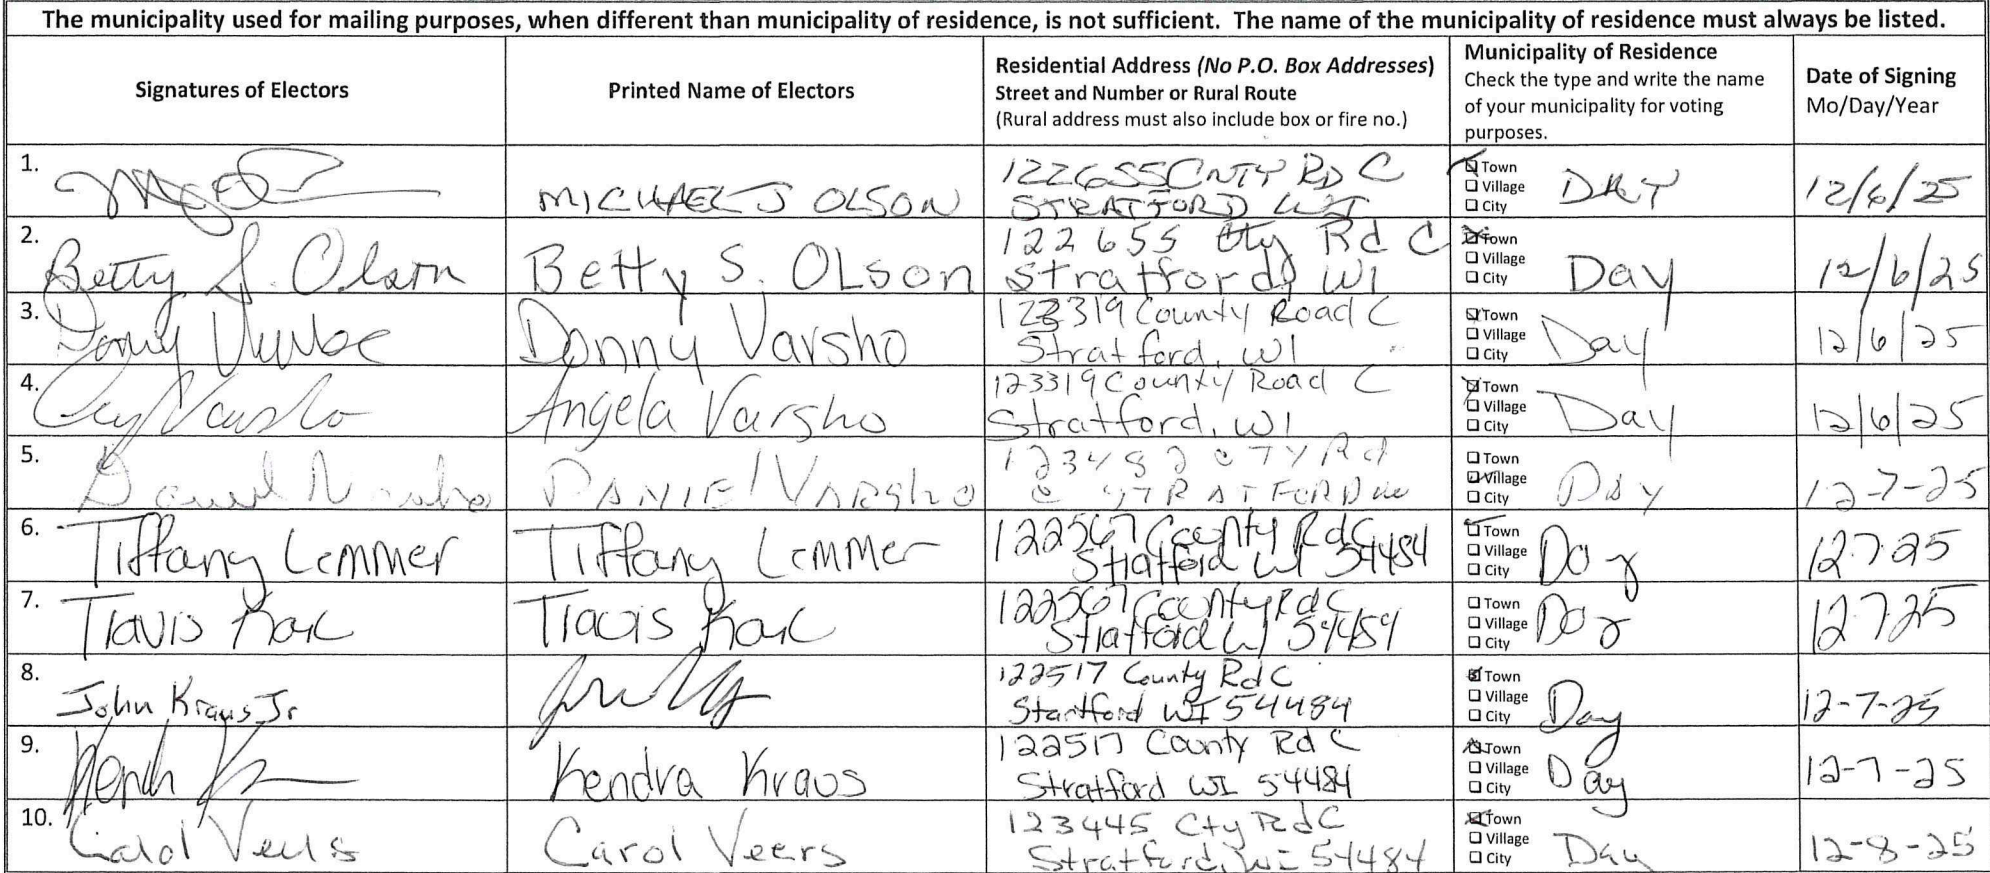 The municipality used for mailing purposes, when different than municipality of residence, is not sufficient. The name of the municipality of residence must always be listed.
Signatures of Electors
Printed Name of Electors
Residential Address (No P.O. Box Addresses)
Street and Number or Rural Route
(Rural address must also include box or fire no.)
Municipality of Residence
Check the type and write the name
of your municipality for voting
purposes.
Date of Signing
Mo/Day/Year
1.
MICHAEL J OLSON
122655 CNTY RD C
STRATFORD WI
Town
Village
City
DAY
12/6/25
2.
Betty S. Olson
Betty S. OLson
122655 Cty Rd C
Stratford, WI
Town
Village
City
Day
12/6/25
3.
Donny
Donny Varsho
123319 County Road C
Stratford, WI
Town
Village
City
Day
12/6/25
4.
Varsho
Angela Varsho
123319 County Road C
Stratford, WI
Town
Village
City
Day
12/6/25
5.
Daniel Varsho
DANIEl VARSho
123482 CTY Rd
C STRATFORD WI
Town
Village
City
DAY
12-7-25
6.
Tiffany Lemmer
Tiffany Lemmer
122567 County Rd C
Stratford WI 54484
Town
Village
City
Day
12-7-25
7.
Travis
Travis
122567 County Rd C
Stratford WI 54484
Town
Village
City
Day
12-7-25
8.
John Kraus Jr
122517 County Rd C
Startford WI 54484
Town
Village
City
Day
12-7-25
9.
Kendra Kraus
122517 County Rd C
Stratford WI 54484
Town
Village
City
Day
12-7-25
10.
Carol Veers
Carol Veers
123445 Cty Rd C
Stratford, WI 54484
Town
Village
City
Day
12-8-25